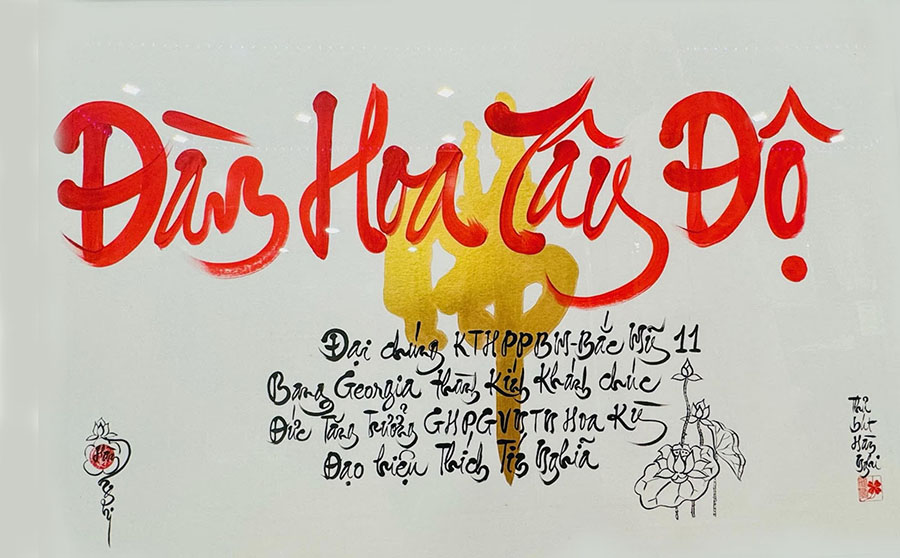 Đàn Hoa Tây Độ
Đại chúng KTHPPBM-Bắc Mỹ 11
Bang Georgia thành Kính Khánh chúc
Đức Tăng Trưởng GHPGVNTN Hoa Kỳ
Đạo hiệu Thích Tín Nghĩa
Thủ
bút
Hàn
Nghi